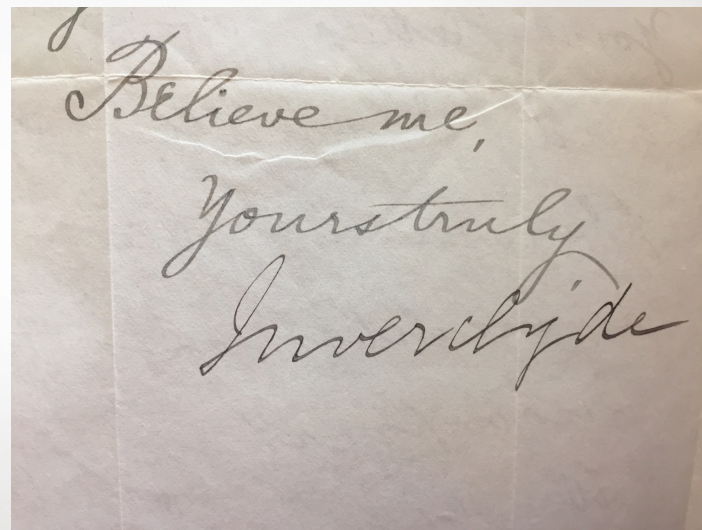 Believe me,
Yours truly
Inverclyde